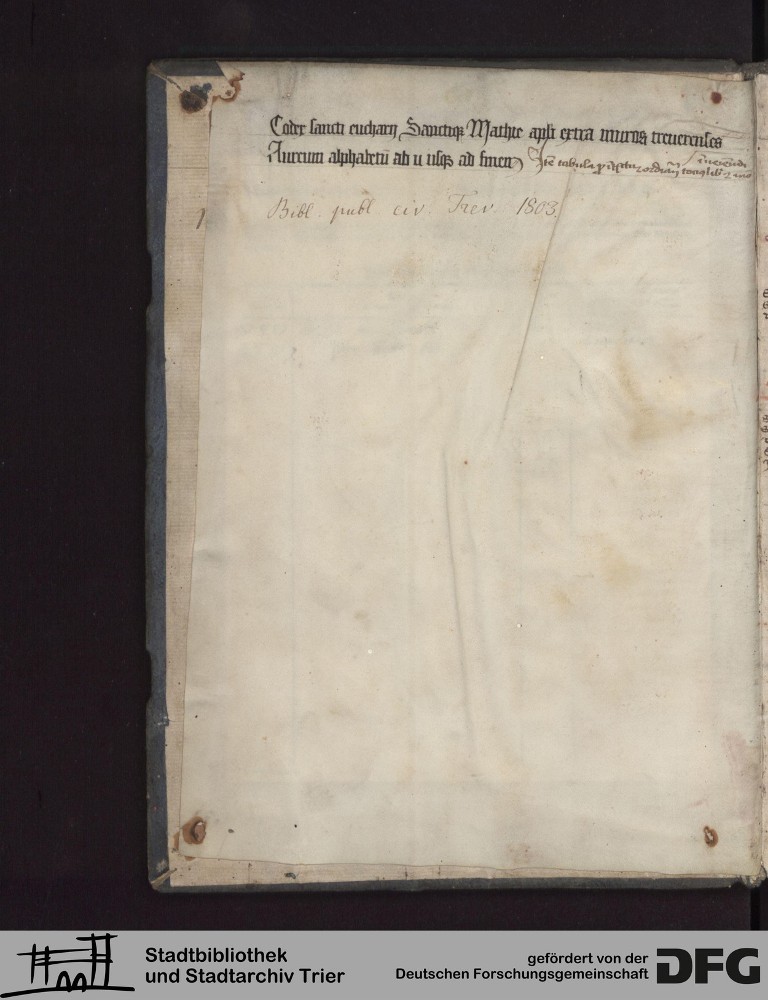 Codex sancti eucharii Sanctiqꝫ Mathie apłi extra muros treuerenses
Aureum alphabetū ab u usqꝫ ad finem Itē tabula
Bibl. publ. civ. Trev. 1803.
Stadtbibliothek
und Stadtarchiv Trier
gefördert von der
Deutschen Forschungsgemeinschaft
DFG